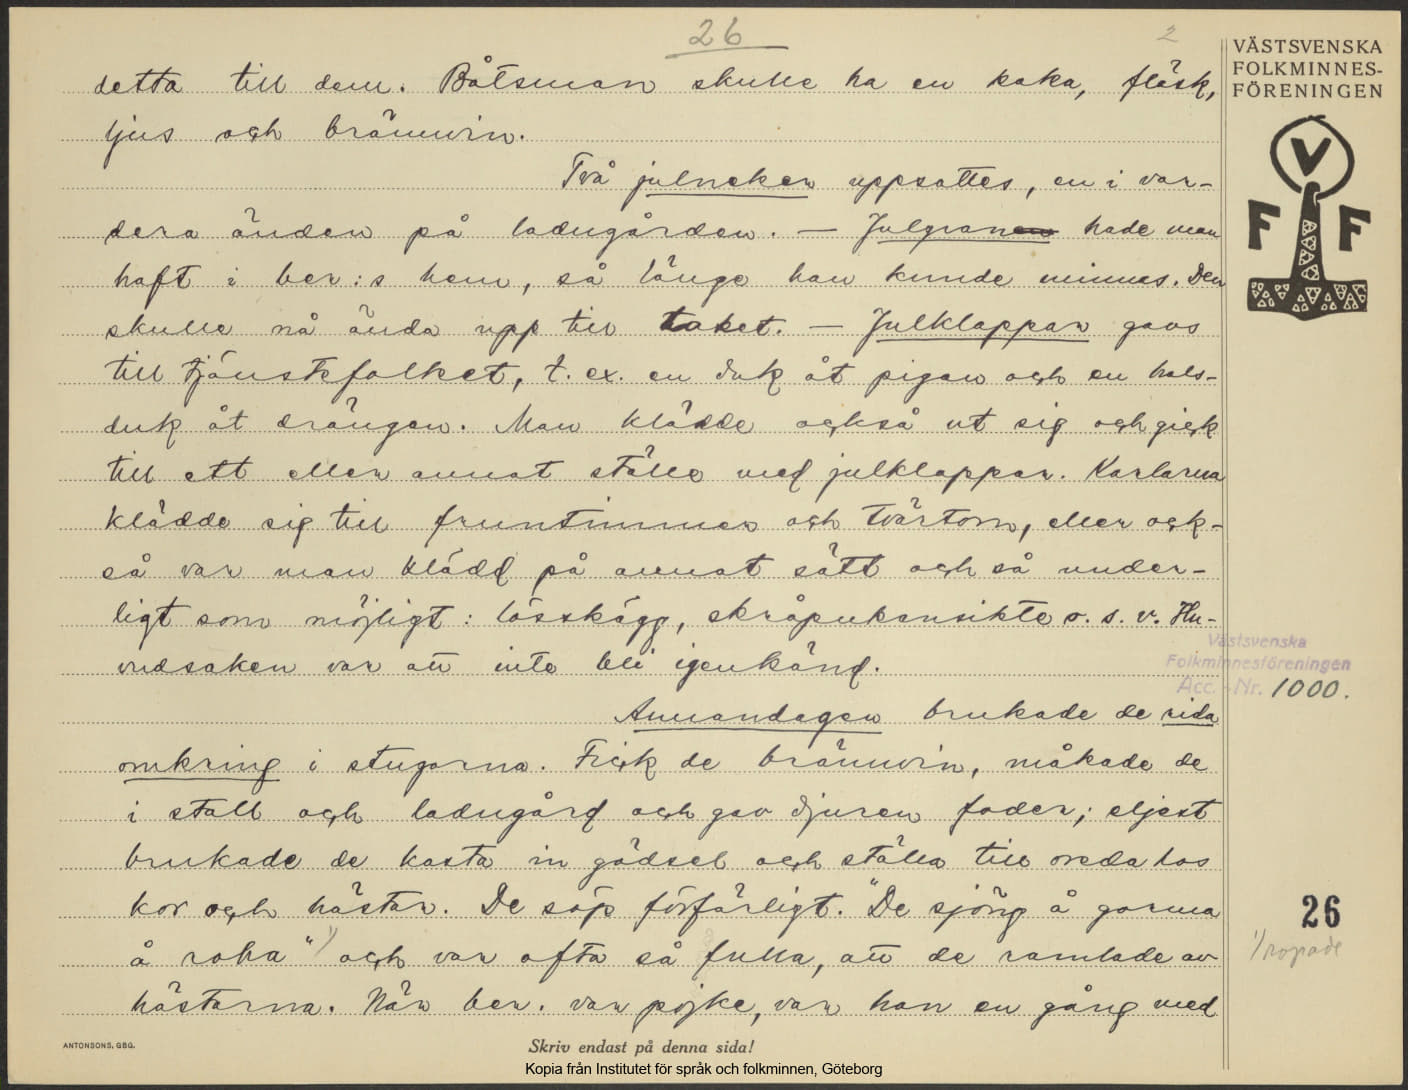 26
2
VÄSTSVENSKA
FOLKMINNES-
FÖRENINGEN
V
F F
detta till dem. Båtsman skulle ha en kaka, fläsk,
ljus och brännvin.
Två julneker uppsattes, en i var-
dera änden på ladugården. — Julgranen hade man
haft i ber:s hem, så länge han kunde minnas. Den
skulle nå ända upp till taket. — Julklappar gavs
till tjänstefolket, t. ex. en duk åt pigan och en hals-
duk åt drängen. Man klädde också ut sig och gick
till ett eller annat ställe med julklappar. Karlarna
klädde sig till fruntimmer och tvärtom, eller ock-
så var man klädd på annat sätt och så under-
ligt som möjligt: lösskägg, skråpukansikte o. s. v. Hu-
vudsaken var att inte bli igenkänd.
Västsvenska
Folkminnesföreningen
Acc. - Nr. 1000.
Annandagen brukade de rida
omkring i stugorna. Fick de brännvin, måkade de
i stall och ladugård och gav djuren foder; eljest
brukade de kasta in gödsel och ställa till oreda hos
kor och hästar. De söp förfärligt. "De sjöng å gorma
å roha" 1) och var ofta så fulla, att de ramlade av
hästarna. När ber. var pojke, var han en gång med
26
1/ ropade
ANTONSONS, GBG.
Skriv endast på denna sida!
Kopia från Institutet för språk och folkminnen, Göteborg